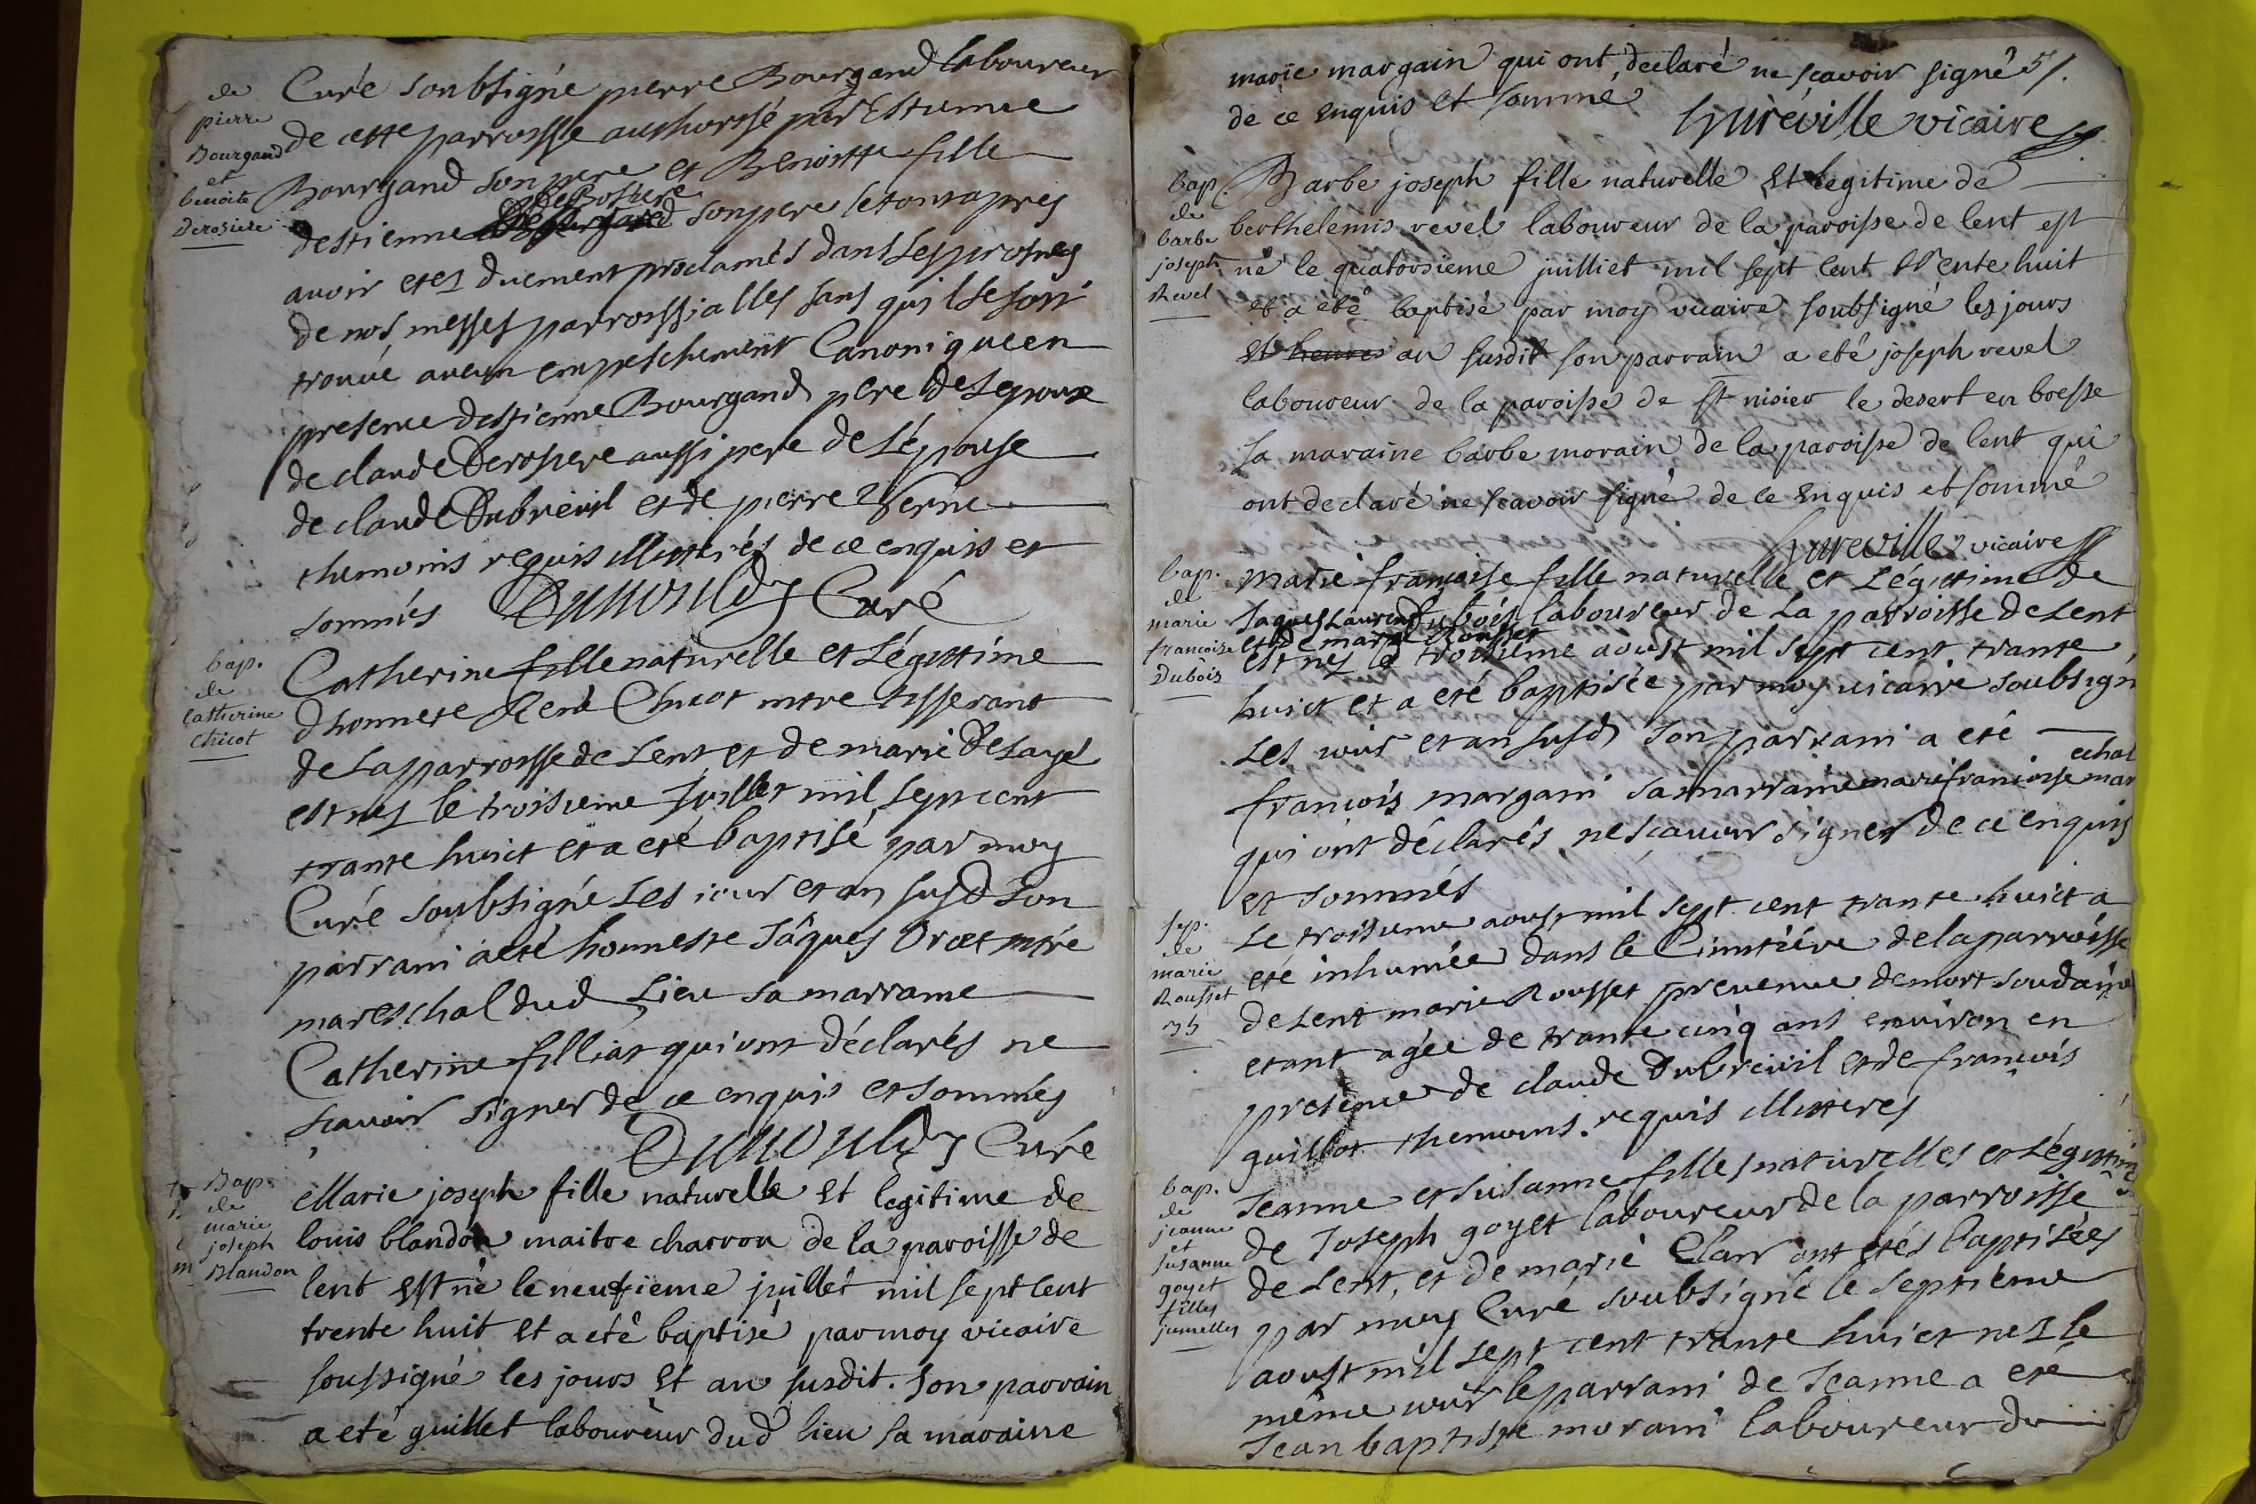 de
pierre
Bourgand
et
benoite
Derosiere
Curé soubsigné pierre Bourgand laboureur
de cette parroisse authorisé par Estienne
Bourgand son pere et Benoitte fille
DeRostere
destienne son pere le tout apres
avoir etez duement proclamés dans les prosnes
de nos messes parroissialles sans quil se soit
trouvé aucun empeschement Canonique en
presence destienne Bourgand pere de Lepoux
de claude Derostere aussi pere de Lépouse
de claude Dubreuil et de pierre Verne
themoins requis illitterés de ce enquis et
sommés Dumoulds Curé
bap.
de
Catherine
Chicot
Catherine fille naturelle et Légittime
dhonnete René Chicot mtre tisserant
de La parroisse de Lent et de marie DeLaye
est nez le troisieme Juillet mil sept cent
trante huict et a eté baptisé par moy
Curé soubsigné Les iour et an susd Son
parrain a eté honneste Jâques Oroet mtre
mareschal dud Lieu sa marraine
Catherine filliat qui ont déclarés ne
scavoir signer de ce enquis et sommés
Dumoulds Curé
Bap.
de
marie
joseph
Blandon
Marie joseph fille naturelle et legitime de
louis blandon maitre charron de la paroisse de
lent est né le neufieme juillet mil sept cent
trente huit et a eté baptisé par moy vicaire
soussigné les jours et an susdit. Son parrain
a eté guillet laboureur dud lieu sa maraine
51.
marie margain qui ont declaré ne scavoir signé
de ce enquis et sommé
hureville vicaire
bap.
de
barbe
joseph
Revel
Barbe joseph fille naturelle et legitime de
berthelemis revel laboureur de la paroisse de lent est
né le quatorsieme juilliet mil sept cent trente huit
et a été baptisé par moy vicaire soubsigné les jours
et heures an susdit son parrain a eté joseph revel
laboureur de la paroisse de st nisier le desert en bresse
sa maraine barbe morain de la paroisse de lent qui
ont declaré ne scavoir signé de ce enquis et sommé
hureville vicaire
bap.
de
marie
francoise
Dubois
Marie francoise fille naturelle et Légittime de
Jaques Laurent Dubois laboureur de La parroisse de Lent
et de marie Rousset
est nez le troisieme aoust mil sept cent trante
huict et a eté baptisée par moy vicaire soubsigné
Les iour et an susd Son parrain a eté
echal
francois margain sa marraine marie francoise mar
qui ont déclarés ne scavoir signer de ce enquis
et sommés
sep.
de
marie
Rousset
35
Le troisieme aoust mil sept cent trante huict a
eté inhumée dans le Cimtiére de la parroisse
de Lent marie Rousset prevenue de mort soudaine
etant agée de trante cinq ans environ en
presence de claude Dubreuil et de francois
guillot themoins requis illitteres
bap.
de
jeanne
et
susanne
goyet
filles
jumelles
Jeanne et susanne filles naturelles et Légittimes
de Joseph goyet laboureur de la parroisse
de Lent, et de marie Clair ont etés baptisées
par moy Curé soubsigné le septiéme
aoust mil sept cent trante huict nez le
même iour le parrain de Jeanne a eté
Jean baptiste morain laboureur du